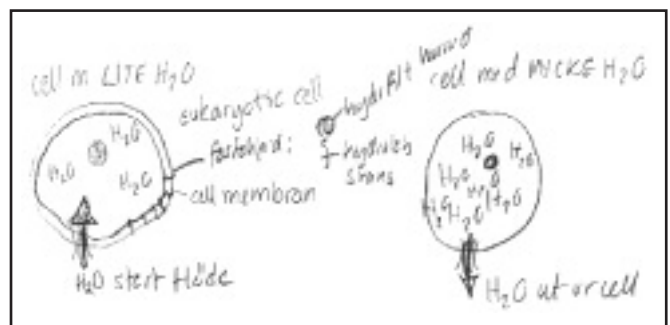 cell m LITE H₂O
eukaryotic cell
H₂O
H₂O
H₂O
cell membran
H₂O stort flöde
hydrofilt huvud
cell med MYCKE H₂O
H₂O
H₂O
H₂O
H₂O
H₂O
H₂O
H₂O ut ur cell